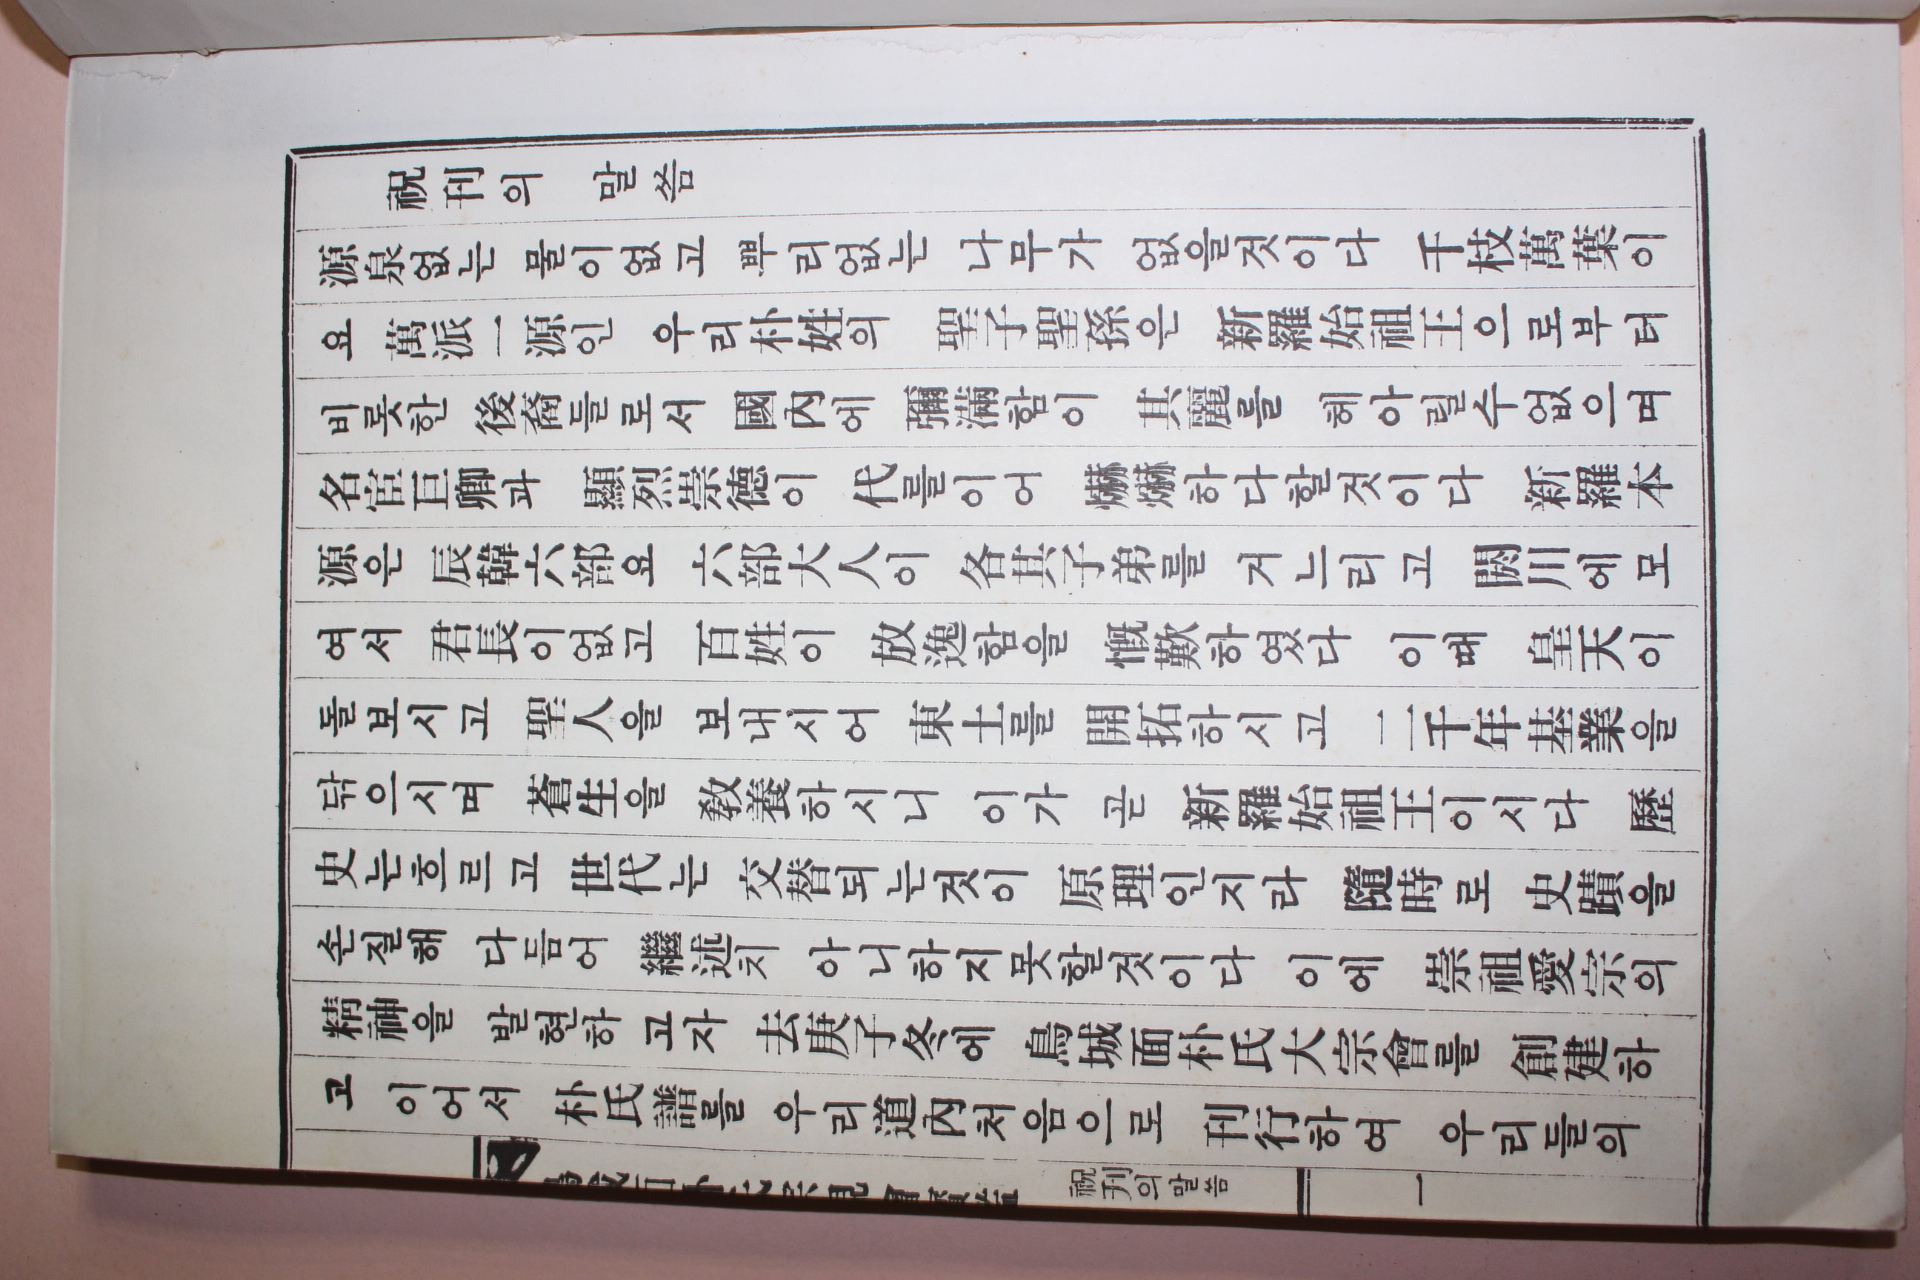 祝刊의 말씀
源泉없는 물이없고 뿌리없는 나무가 없을것이다 千枝萬葉이
요 萬派一源인 우리朴姓의 聖子聖孫은 新羅始祖王으로부터
비롯한 後裔들로서 國內에 彌滿함이 其麗를 헤아릴수없으며
名宦巨卿과 顯烈崇德이 代를이어 爀爀하다할것이다 新羅本
源은 辰韓六部요 六部大人이 各其子弟를 거느리고 閼川에모
여서 君長이없고 百姓이 放逸함을 慨歎하였다 이때 皇天이
돌보시고 聖人을 보내시어 東土를 開拓하시고 二千年基業을
닦으시며 蒼生을 敎養하시니 이가 곧 新羅始祖王이시다 歷
史는흐르고 世代는 交替되는것이 原理인지라 隨時로 史蹟을
손질해 다듬어 繼述치 아니하지못할것이다 이에 崇祖愛宗의
精神을 발현하고자 去庚子冬에 鳥城面朴氏大宗會를 創建하
고 이어서 朴氏譜를 우리道內처음으로 刊行하여 우리들의
祝刊의말씀
一